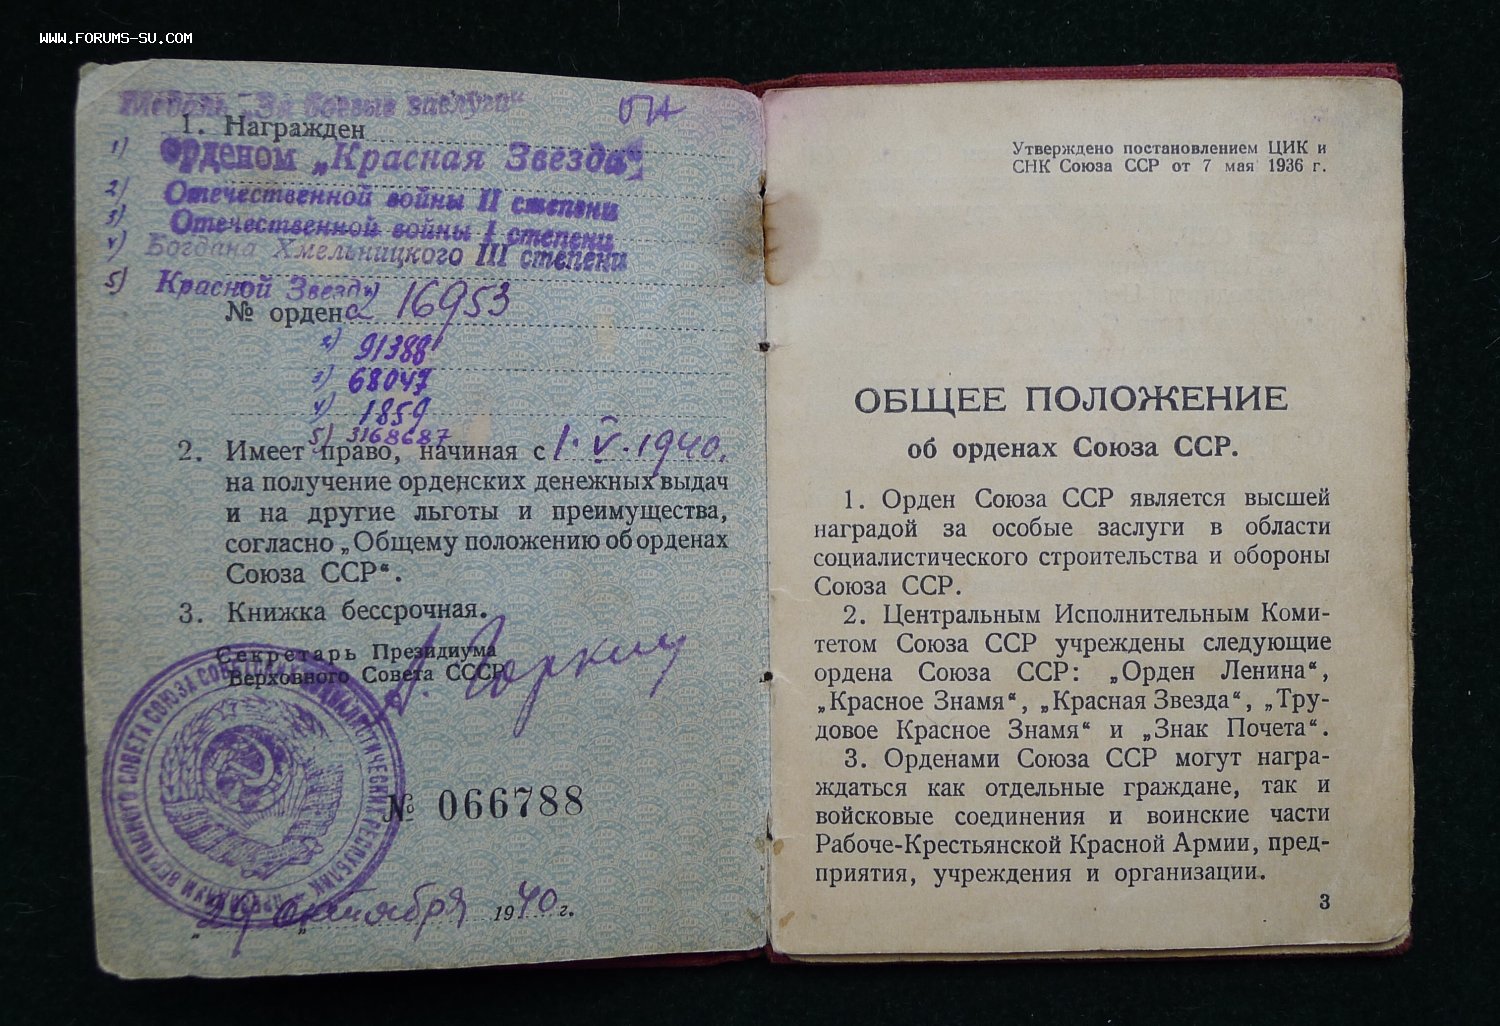 WWW.FORUMS-SU.COM
Медаль „За боевые заслуги“
1. Награжден
1) орденом „Красная Звезда“
2) Отечественной войны II степени
3) Отечественной войны I степени
4) Богдана Хмельницкого III степени
5) Красной Звезды
№ ордена 16953
2) 91388
3) 68047
4) 1859
5) 3168687
2. Имеет право, начиная с 1.V.1940.
на получение орденских денежных выдач
и на другие льготы и преимущества,
согласно „Общему положению об орденах
Союза ССР“.
3. Книжка бессрочная.
Секретарь Президиума
Верховного Совета СССР
А. Горкин
№ 066788
„29“ октября 1940 г.
Утверждено постановлением ЦИК и
СНК Союза ССР от 7 мая 1936 г.
ОБЩЕЕ ПОЛОЖЕНИЕ
об орденах Союза ССР.
1. Орден Союза ССР является высшей
наградой за особые заслуги в области
социалистического строительства и обороны
Союза ССР.
2. Центральным Исполнительным Коми-
тетом Союза ССР учреждены следующие
ордена Союза ССР: „Орден Ленина“,
„Красное Знамя“, „Красная Звезда“, „Тру-
довое Красное Знамя“ и „Знак Почета“.
3. Орденами Союза ССР могут награ-
ждаться как отдельные граждане, так и
войсковые соединения и воинские части
Рабоче-Крестьянской Красной Армии, пред-
приятия, учреждения и организации.
3